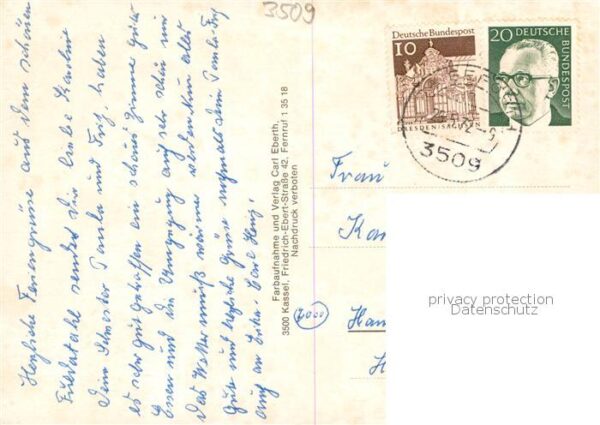 3509
Herzliche Feriengrüße aus dem schönen
Fuldatal sendet Dir liebe
Deine Schwester Paula und Fritz, haben
es sehr gut getroffen ein schönes Zimmer gutes
Essen und die Umgegung auch sehr schön nur
das Wetter muß wärmer werden. Nun alles
Gute und herzliche Grüße nochmals Deine Paula Fritz
auch an
Farbaufnahme und Verlag Carl Eberth.
3500 Kassel, Friedrich-Ebert-Straße 42, Fernruf 1 35 18
Nachdruck verboten
Deutsche Bundespost
10
DRESDEN/SACHSEN
20 DEUTSCHE
BUNDESPOST
3509
Frau
Ka
Han
H
privacy protection
Datenschutz